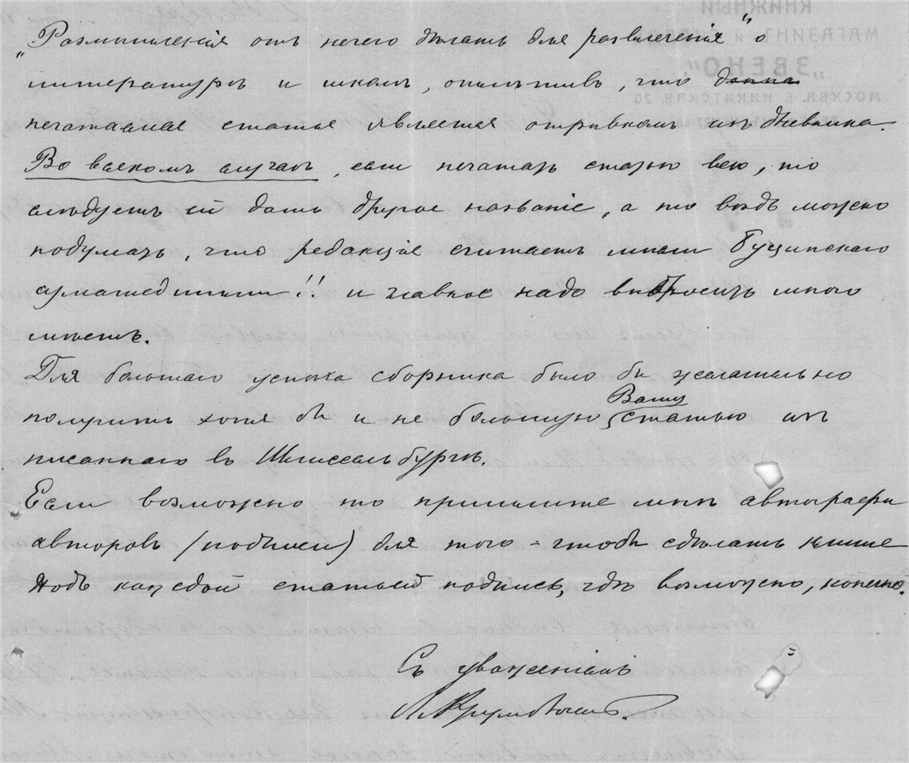 „Размышленія отъ нечего дѣлать для развлеченія“ о
литературѣ и школѣ, отмѣтивъ, что данна
печатаемая статья является отрывкомъ изъ дневника.
Во всякомъ случаѣ, если печатать статью всю, то
слѣдуетъ ей дать другое названіе, а то вѣдь можно
подумать, что редакція считаетъ мысли Буцинскаго
сумашедшими!! и главное надо выбросить много
мѣстъ.
Для большаго успѣха сборника было бы желательно
получить хотя бы и не большую Вашу статью изъ
писаннаго въ Шлиссельбургѣ.
Если возможно то пришлите мнѣ автографы
авторовъ (подписи) для того - чтобы сдѣлать клише
подъ каждой статьей подпись, гдѣ возможно, конечно.
Съ уваженіемъ